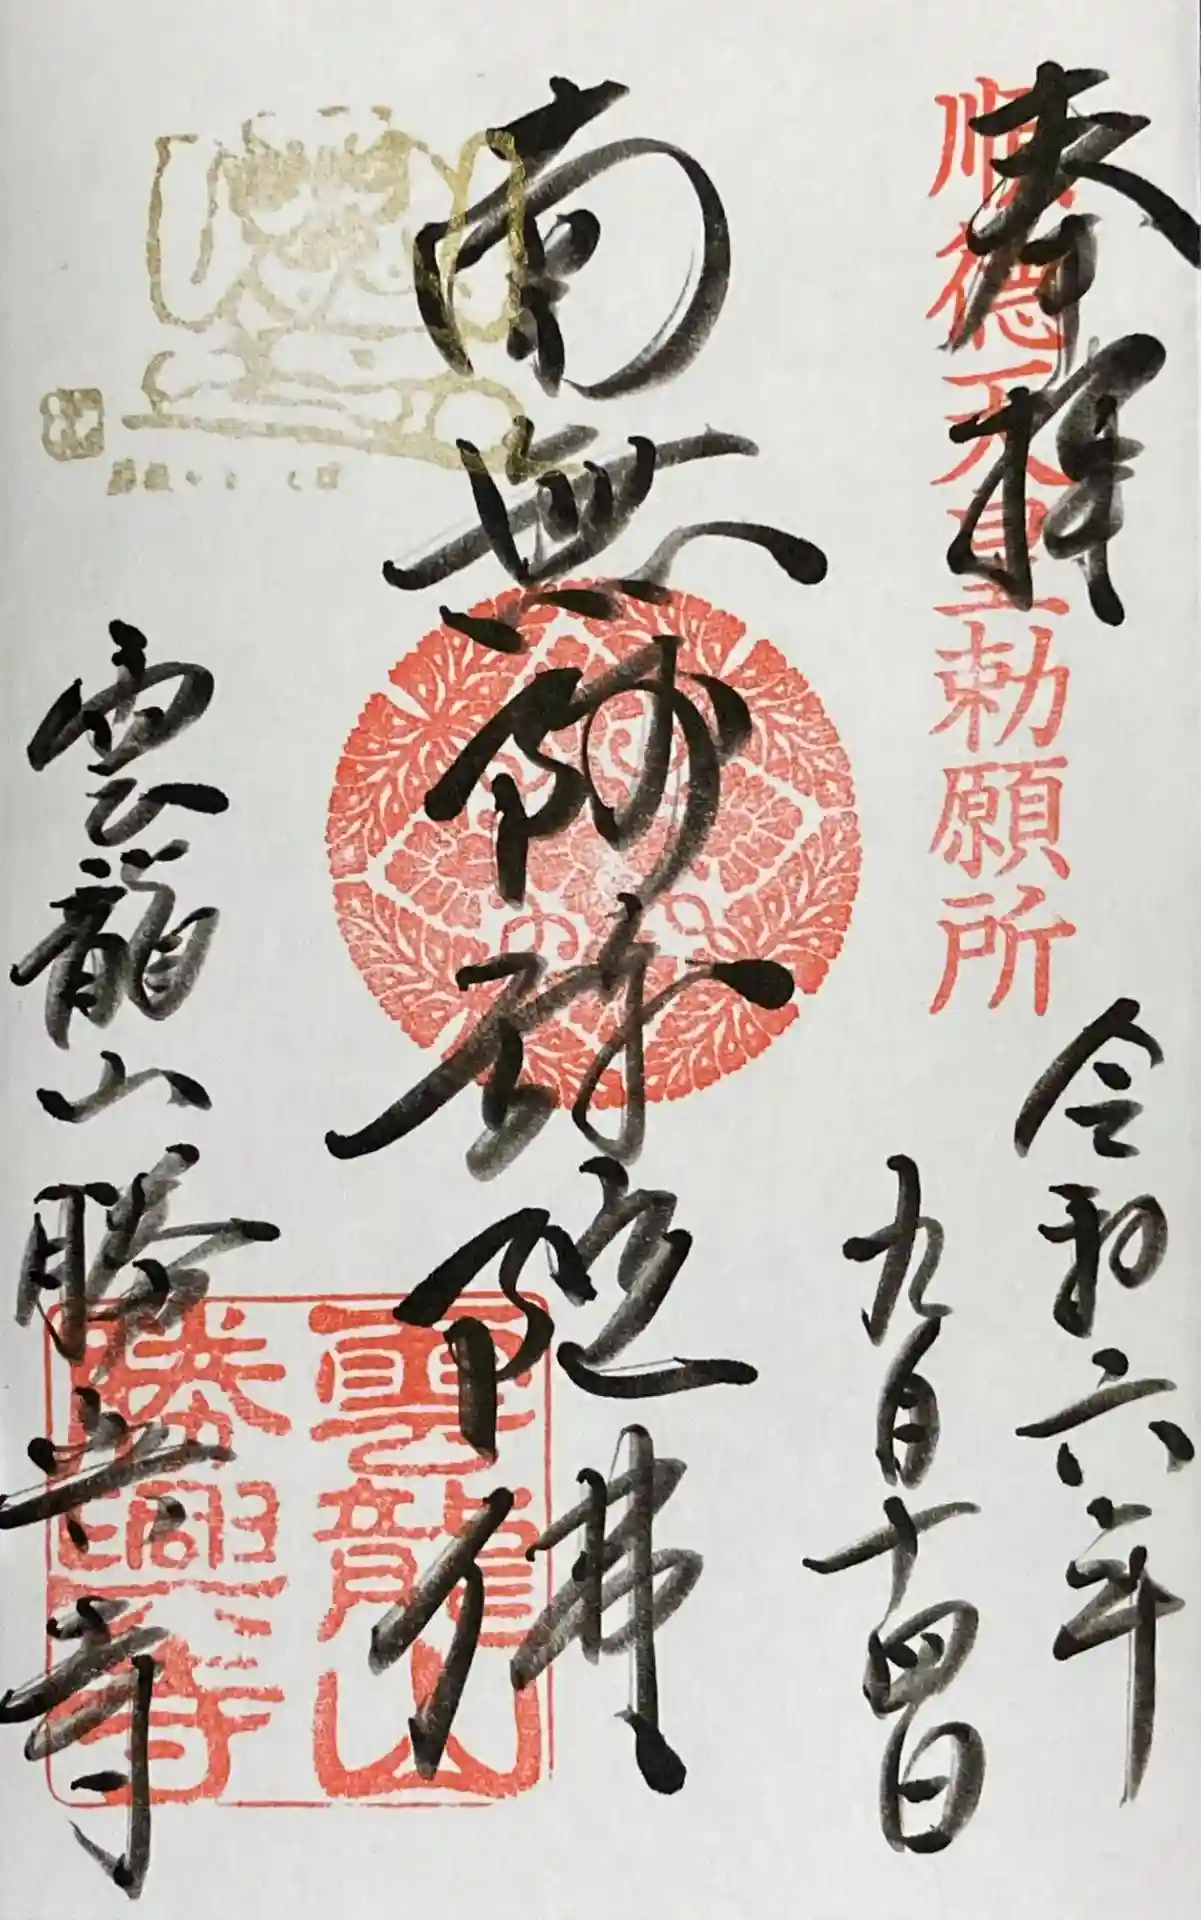 奉拝
順德天皇勅願所
令和六年
九月十四日
南無阿弥陀佛
雲龍山勝興寺
雲龍山
勝興寺